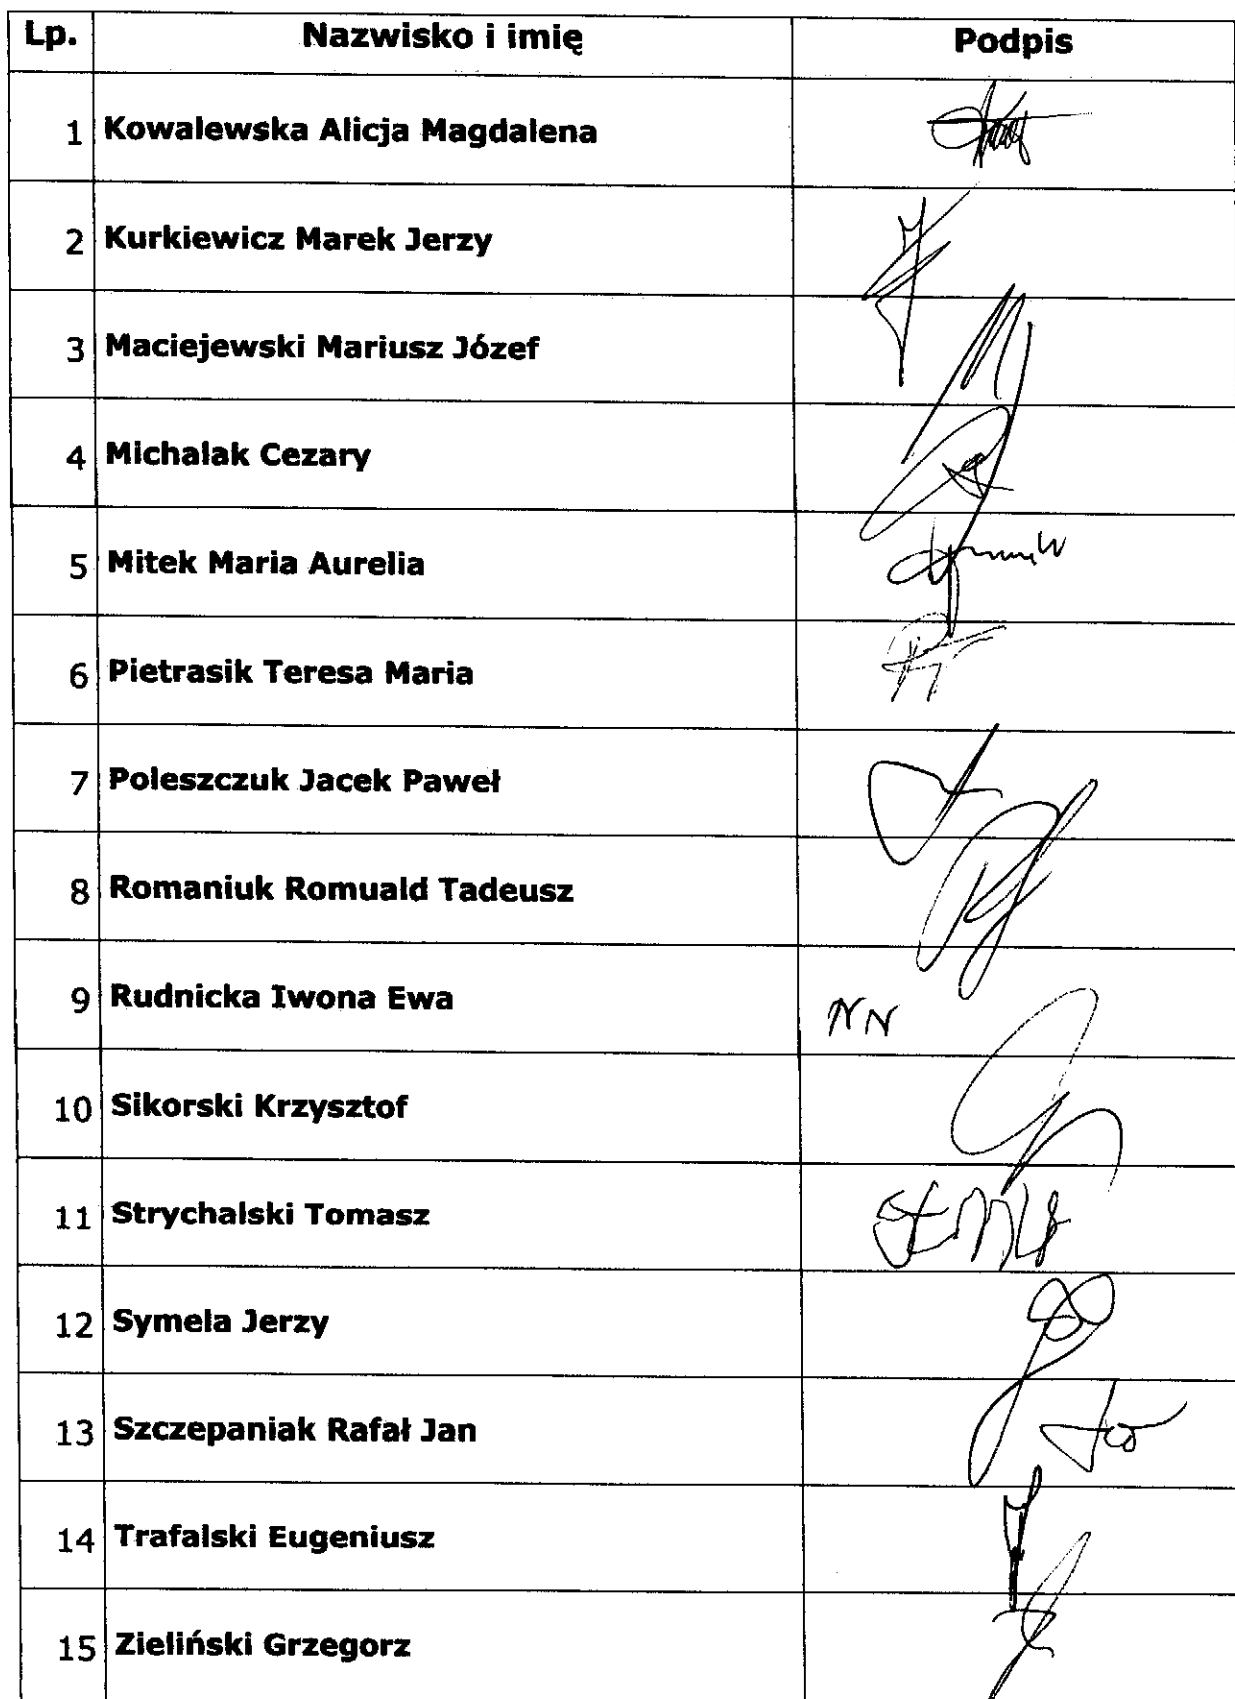 Lp. Nazwisko i imię Podpis
1 Kowalewska Alicja Magdalena
2 Kurkiewicz Marek Jerzy
3 Maciejewski Mariusz Józef
4 Michalak Cezary
5 Mitek Maria Aurelia
6 Pietrasik Teresa Maria
7 Poleszczuk Jacek Paweł
8 Romaniuk Romuald Tadeusz
9 Rudnicka Iwona Ewa NN
10 Sikorski Krzysztof
11 Strychalski Tomasz
12 Symela Jerzy
13 Szczepaniak Rafał Jan
14 Trafalski Eugeniusz
15 Zieliński Grzegorz